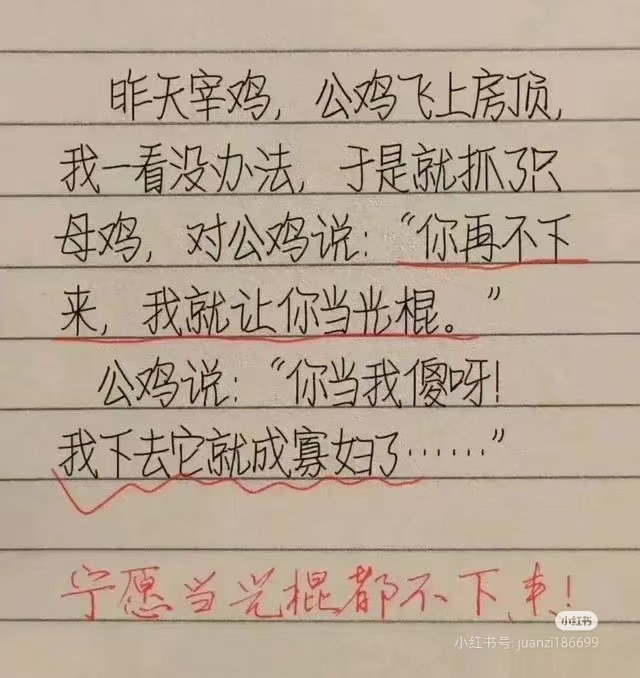 昨天宰鸡，公鸡飞上房顶，
我一看没办法，于是就抓了只
母鸡，对公鸡说：“你再不下
来，我就让你当光棍。”
公鸡说：“你当我傻呀！
我下去它就成寡妇了……”
宁愿当光棍都不下来！
小红书
小红书号: juanzi186699